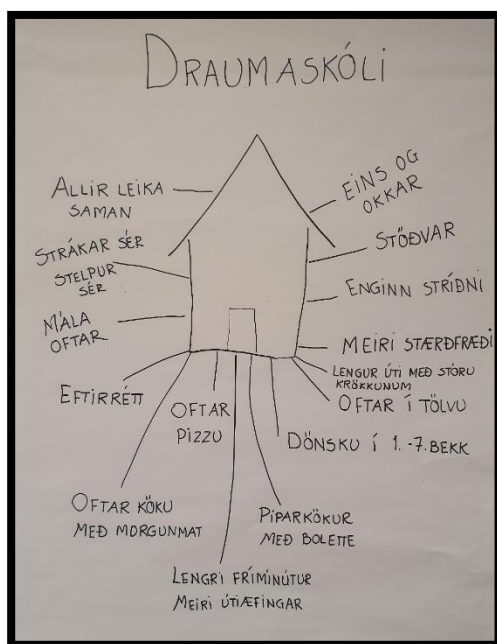 DRAUMASKÓLI
ALLIR LEIKA
SAMAN
STRÁKAR SÉR
STELPUR
SÉR
MÁLA
OFTAR
EFTIRRÉTT
OFTAR KÖKU
MEÐ MORGUNMAT
OFTAR
PIZZU
LENGRI FRÍMÍNÚTUR
MEIRI ÚTIÆFINGAR
PIPARKÖKUR
MEÐ BOLETTE
DÖNSKU Í 1.-7. BEKK
OFTAR Í TÖLVU
LENGUR ÚTI MEÐ STÓRU
KRÖKKUNUM
MEIRI STÆRÐFRÆÐI
ENGINN STRÍÐNI
STÖÐVAR
EINS OG
OKKAR